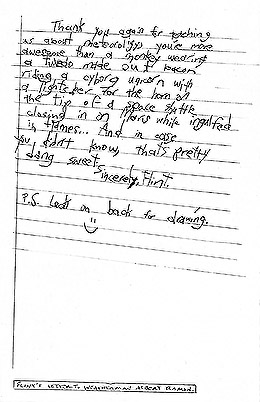 Thank you again for teaching
us about meteorology, you're more
awesome than a monkey wearing
a tuxedo made out bacon
riding a cyborg unicorn with
a lightsaber for the horn on
the tip of a space shuttle
closing in on Mars while ingulfed
in flames... And in case
you didn't know, that's pretty
dang sweet.
Sincerely, Flint.
P.S. Look on back for drawing.
LETTER TO WEATHERMAN ALBERT RAMON.